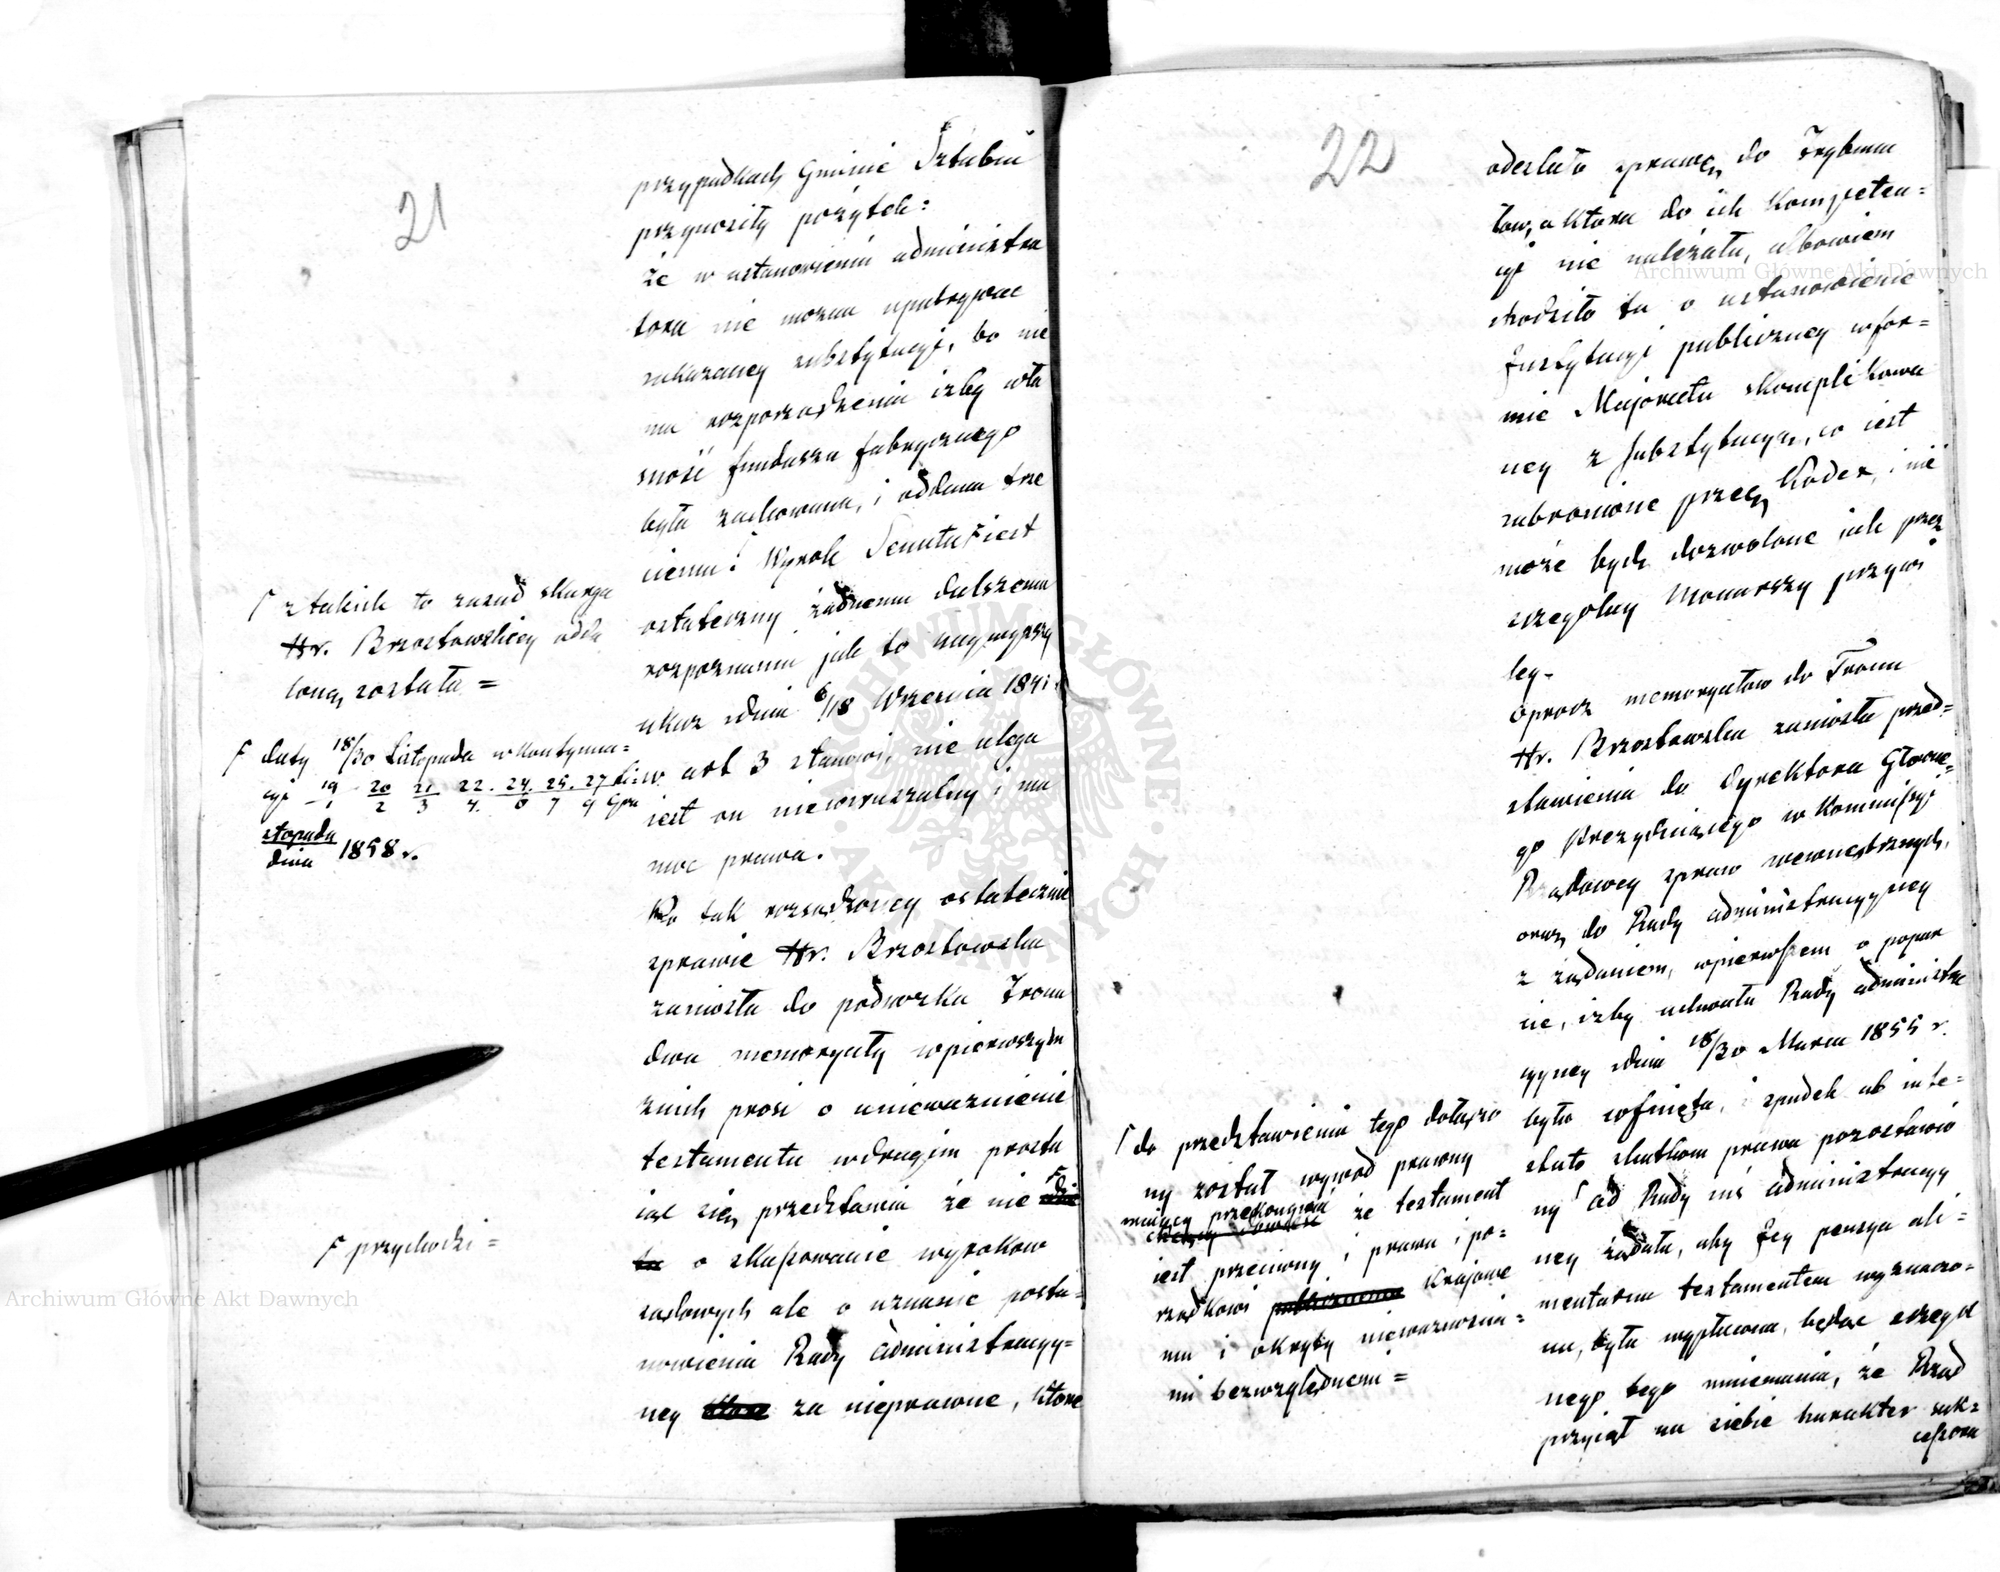 21
przypadkach Gminie Sztabin
przynosiły pożytek:
że w ustanowieniu administra
tora nie można upatrywać
zakazaney substytucyi, bo nie
ma rozporządzenia izby wła
sność funduszu fabrycznego
była zachowana, i oddana trze
ciemu! Wyrok Senatu iest
ostateczny żadnemu dalszemu
rozpoznaniu jak to naywyższy
ukaz z dnia 6/18 Września 1841 r.
w art 3 stanowi, nie ulega
iest on niewzruszalny i ma
moc prawa.
Po tak rozsądzoney ostatecznie
sprawie Hr. Brzostowska
zaniosła do podnóżka Tronu
dwa memoryały w pierwszym
z nich prosi o unieważnienie
testamentu w drugim prosta
iąc się przedstawia że nie
to o skassowanie wyroków
sądowych ale o uznanie posta=
nowienia Rady administracyy=
ney które za nieprawne, które
Γ z takich to zasad skarga
Hr. Brzostowskiey odda
loną została =
Γ daty 18/30 Listopada w kontynua=
cyi 19/1 20/2 21/3 22/4 24/6 25/7 27/9 Li
stopada/dnia Gru 1858 r.
Γ przychodzi =
22
odesłało sprawę do Trybuna
łów, a która do ich kompeten=
cyi nie należała, albowiem
chodziło tu o ustanowienie
Instytucyi publiczney w for=
mie Majoratu skomplikowa
ney z substytucyą, co iest
zabronione przez Kodex, i nie
może bydź dozwolone jak przez
szczególny Monarszy przywi
ley-
Oprócz memoryałów do Tronu
Hr. Brzostowska zaniosła przed=
stawienia do Dyrektora Główne=
go Prezydującego w Kommissyi
Rządowey spraw wewnętrznych,
oraz do Rady administracyyney
z żądaniem, w pierwszem o popar
cie, izby uchwała Rady administra
cyyney z dnia 18/30 Marca 1855 r.
była cofnięta, i spadek ab inte=
stato skutkom prawa pozostawio
ny Γ od Rady zaś administracyy
ney żądała, aby Jey pensya ali=
mentarna testamentem wyznaczo=
na, była wypłacona, będąc szczegól
nego tego mniemania, że Rząd
przyiął na siebie charakter suk=
cessora
Γ do przedstawienia tego dołączo
ny został wywód prawny
maiący przekonywać że testament
iest przeciwny i prawu i po=
rządkowi publicznemu Krajowe
mu i okryty nieważnościa=
mi bezwzględnemi =
Archiwum Główne Akt Dawnych
Archiwum Główne Akt Dawnych
ARCHIWUM GŁÓWNE AKT DAWNYCH